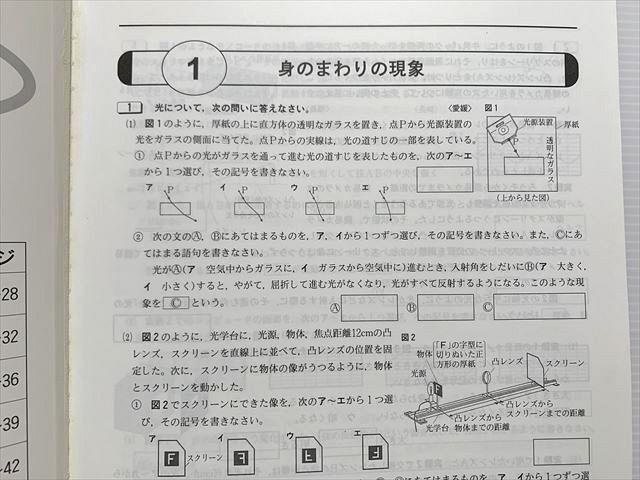 1 身のまわりの現象
1 光について，次の問いに答えなさい。 〈愛媛〉
(1) 図1のように，厚紙の上に直方体の透明なガラスを置き，点Pから光源装置の
光をガラスの側面に当てた。点Pからの実線は，光の道すじの一部を表している。
① 点Pからの光がガラスを通って進む光の道すじを表したものを，次のア〜エ
から1つ選び，その記号を書きなさい。
ア イ ウ エ
P P P P
図1
光源装置
厚紙
P
透明なガラス
(上から見た図)
② 次の文のⒶ，Ⓑにあてはまるものを，ア，イから1つずつ選び，その記号を書きなさい。また，Ⓒにあ
てはまる語句を書きなさい。
光がⒶ(ア 空気中からガラスに，イ ガラスから空気中に)進むとき，入射角をしだいにⒷ(ア 大きく，
イ 小さく)すると，やがて，屈折して進む光がなくなり，光がすべて反射するようになる。このような現
象を Ⓒ という。
Ⓐ Ⓑ Ⓒ
(2) 図2のように，光学台に，光源，物体，焦点距離12cmの凸
レンズ，スクリーンを直線上に並べて，凸レンズの位置を固
定した。次に，スクリーンに物体の像がうつるように，物体
とスクリーンを動かした。
① 図2でスクリーンにできた像を，次のア〜エから1つ選
び，その記号を書きなさい。
ア イ ウ エ
スクリーン
図2
「F」の字型に
切りぬいた正
方形の厚紙
物体
光源
凸レンズ
スクリーン
凸レンズから
スクリーンまでの距離
光学台
凸レンズから
物体までの距離
ジ
28
32
36
39
42